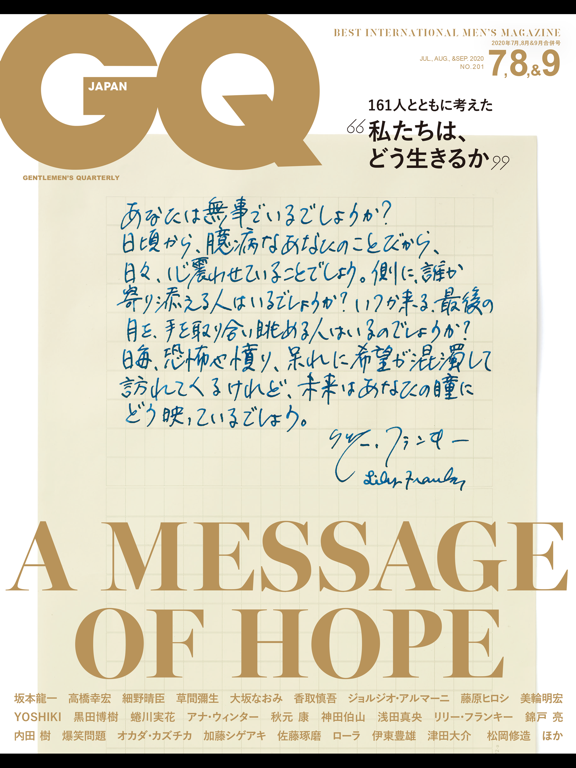 GQ
JAPAN
GENTLEMEN'S QUARTERLY
BEST INTERNATIONAL MEN'S MAGAZINE
2020年7月,8月&9月合併号
JUL., AUG., &SEP. 2020
NO.201
7,8,&9
161人とともに考えた
“私たちは、
どう生きるか”
あなたは無事でいるでしょうか?
日頃から、臆病なあなたのことだから、
日々、心震わせていることでしょう。側に、誰か
寄り添える人はいるでしょうか? いつか来る、最後の
月を、手を取り合い眺める人はいるのでしょうか?
日毎、恐怖や憤り、呆れに希望が混濁して
訪れてくるけれど、未来はあなたの瞳に
どう映っているでしょう。
リリー・フランキー
Lily Franky
A MESSAGE
OF HOPE
坂本龍一 高橋幸宏 細野晴臣 草間彌生 大坂なおみ 香取慎吾 ジョルジオ・アルマーニ 藤原ヒロシ 美輪明宏
YOSHIKI 黒田博樹 蜷川実花 アナ・ウィンター 秋元 康 神田伯山 浅田真央 リリー・フランキー 錦戸 亮
内田 樹 爆笑問題 オカダ・カズチカ 加藤シゲアキ 佐藤琢磨 ローラ 伊東豊雄 津田大介 松岡修造 ほか